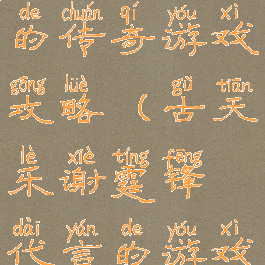 de chuán qí yóu xì
的传奇游戏
gōng lüè gǔ tiān
攻略（古天
lè xiè tíng fēng
乐谢霆锋
dài yán de yóu xì
代言的游戏